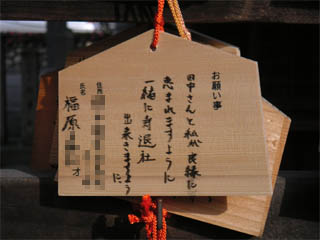 お願い事
田中さんと私が良縁に
恵まれますように
一緒に寿退社
出来きますように
住所
氏名
福原
才